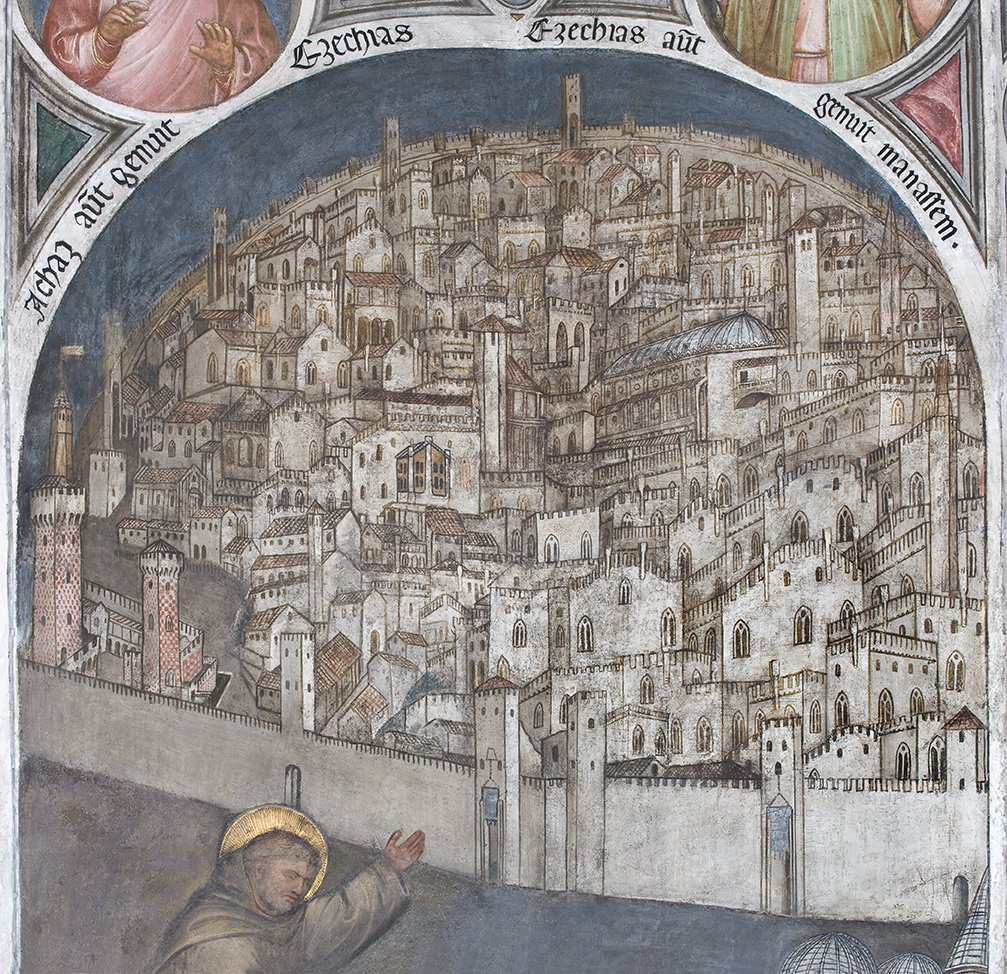 Achaz aūt genuit
Ezechias
Ezechias aūt
genuit manassem.